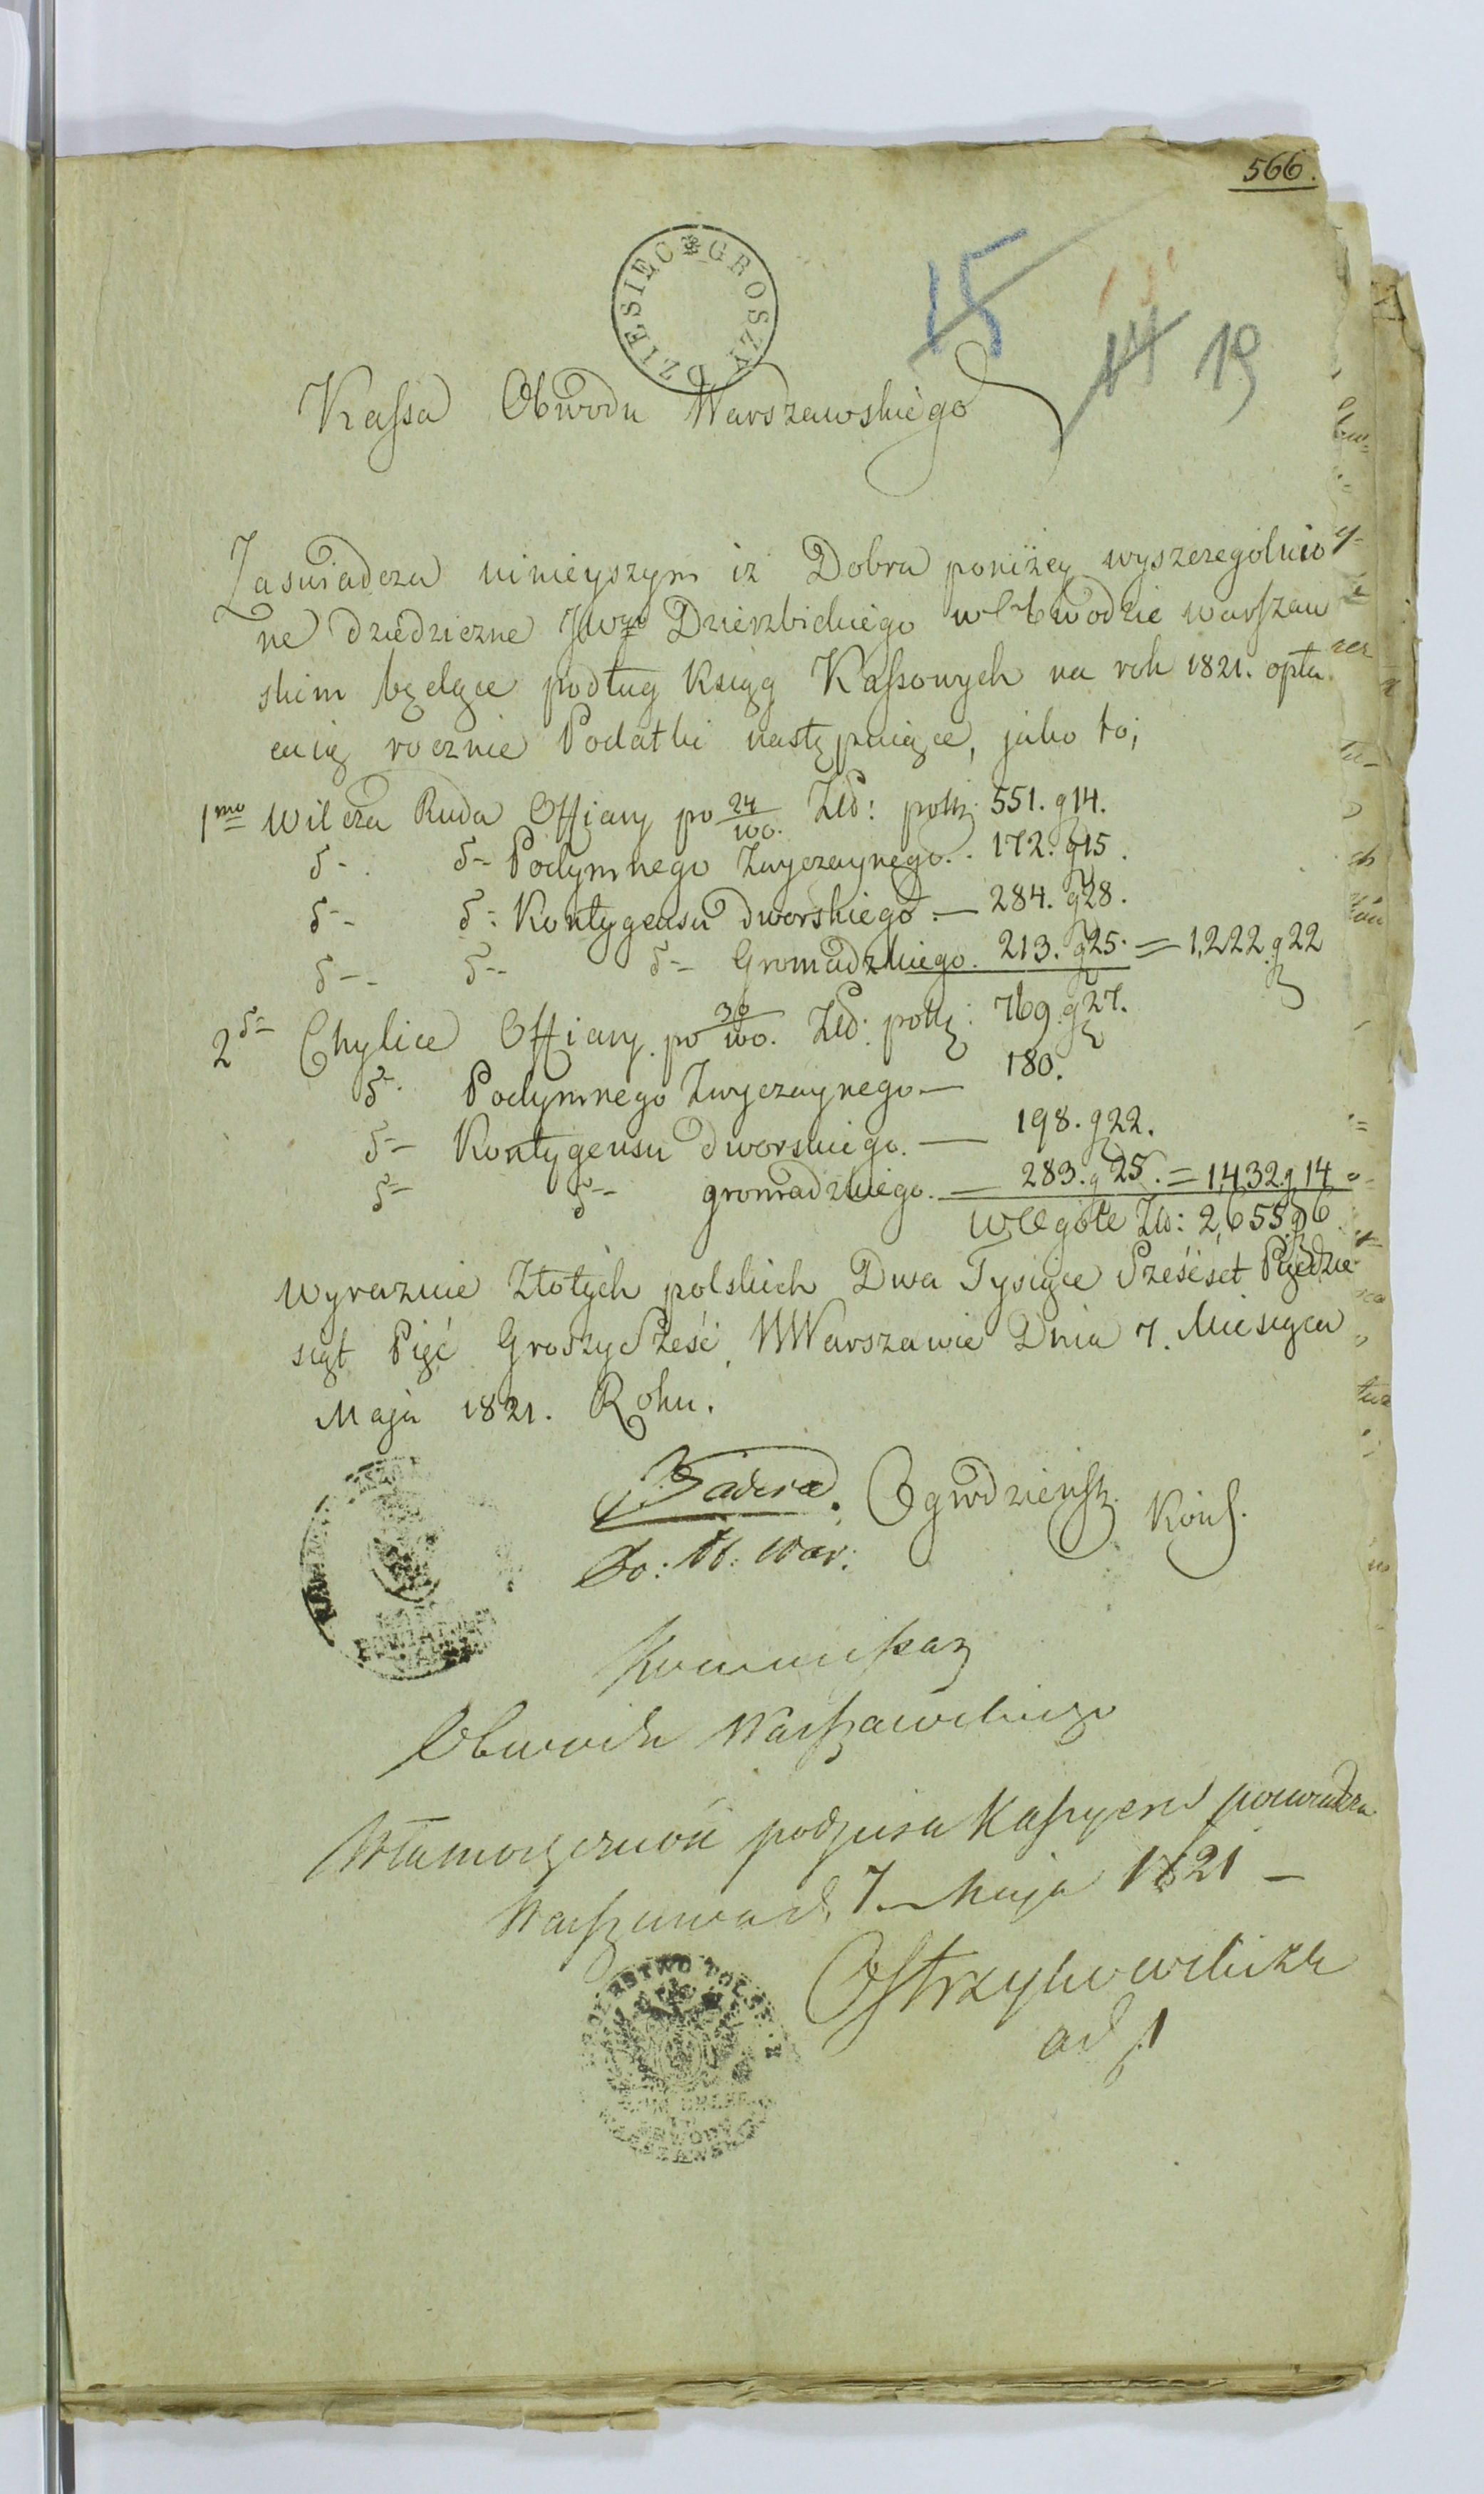 566.
DZIESIEC GROSZY
15
14 19
Kassa Obwodu Warszawskiego
Zaswiadcza ninieyszym iz Dobra poniżey wyszczegolnio
ne dziedziczne JWgo Dzierzbickiego w Obwodzie warszaw
skim będące podług Ksiąg Kassowych na rok 1821. opła
caią rocznie Podatki następuiące, jako to;
1mo Wilcza Ruda Offiary po 24/100. Złł: polk: 551. g 14.
δ-. δ- Podymnego Zwyczaynego.. 172. g 15.
δ- δ: Kontygensu dworskiego.— 284. g 28.
δ-. δ- δ- Gromadzkiego. 213. g 25. = 1,222. g 22
2δ- Chylice Offiary po 30/100. Złł: polk: 769. g 27.
δ-. Podymnego Zwyczaynego— 180.
δ- Kontygensu dworskiego.— 198. g 22.
δ- δ- gromadzkiego.— 283. g 25. = 1432. g 14
w Ogole Złł: 2,655. g 6
wyraznie Złotych polskich Dwa Tysiące Sześćset Pięćdzie
siąt Pięć Groszy Sześć, w Warszawie Dnia 7. Miesiąca
Maja 1821. Roku.
Ogrodzieńsk. Kons.
Ob: War:
Kommissarz
Obwodu Warszawskiego
Własnoręczność podpisu Kassyera poswiadcza
Warszawa d. 7. Maja 1821 —
Ostrzykowski Zk
adj